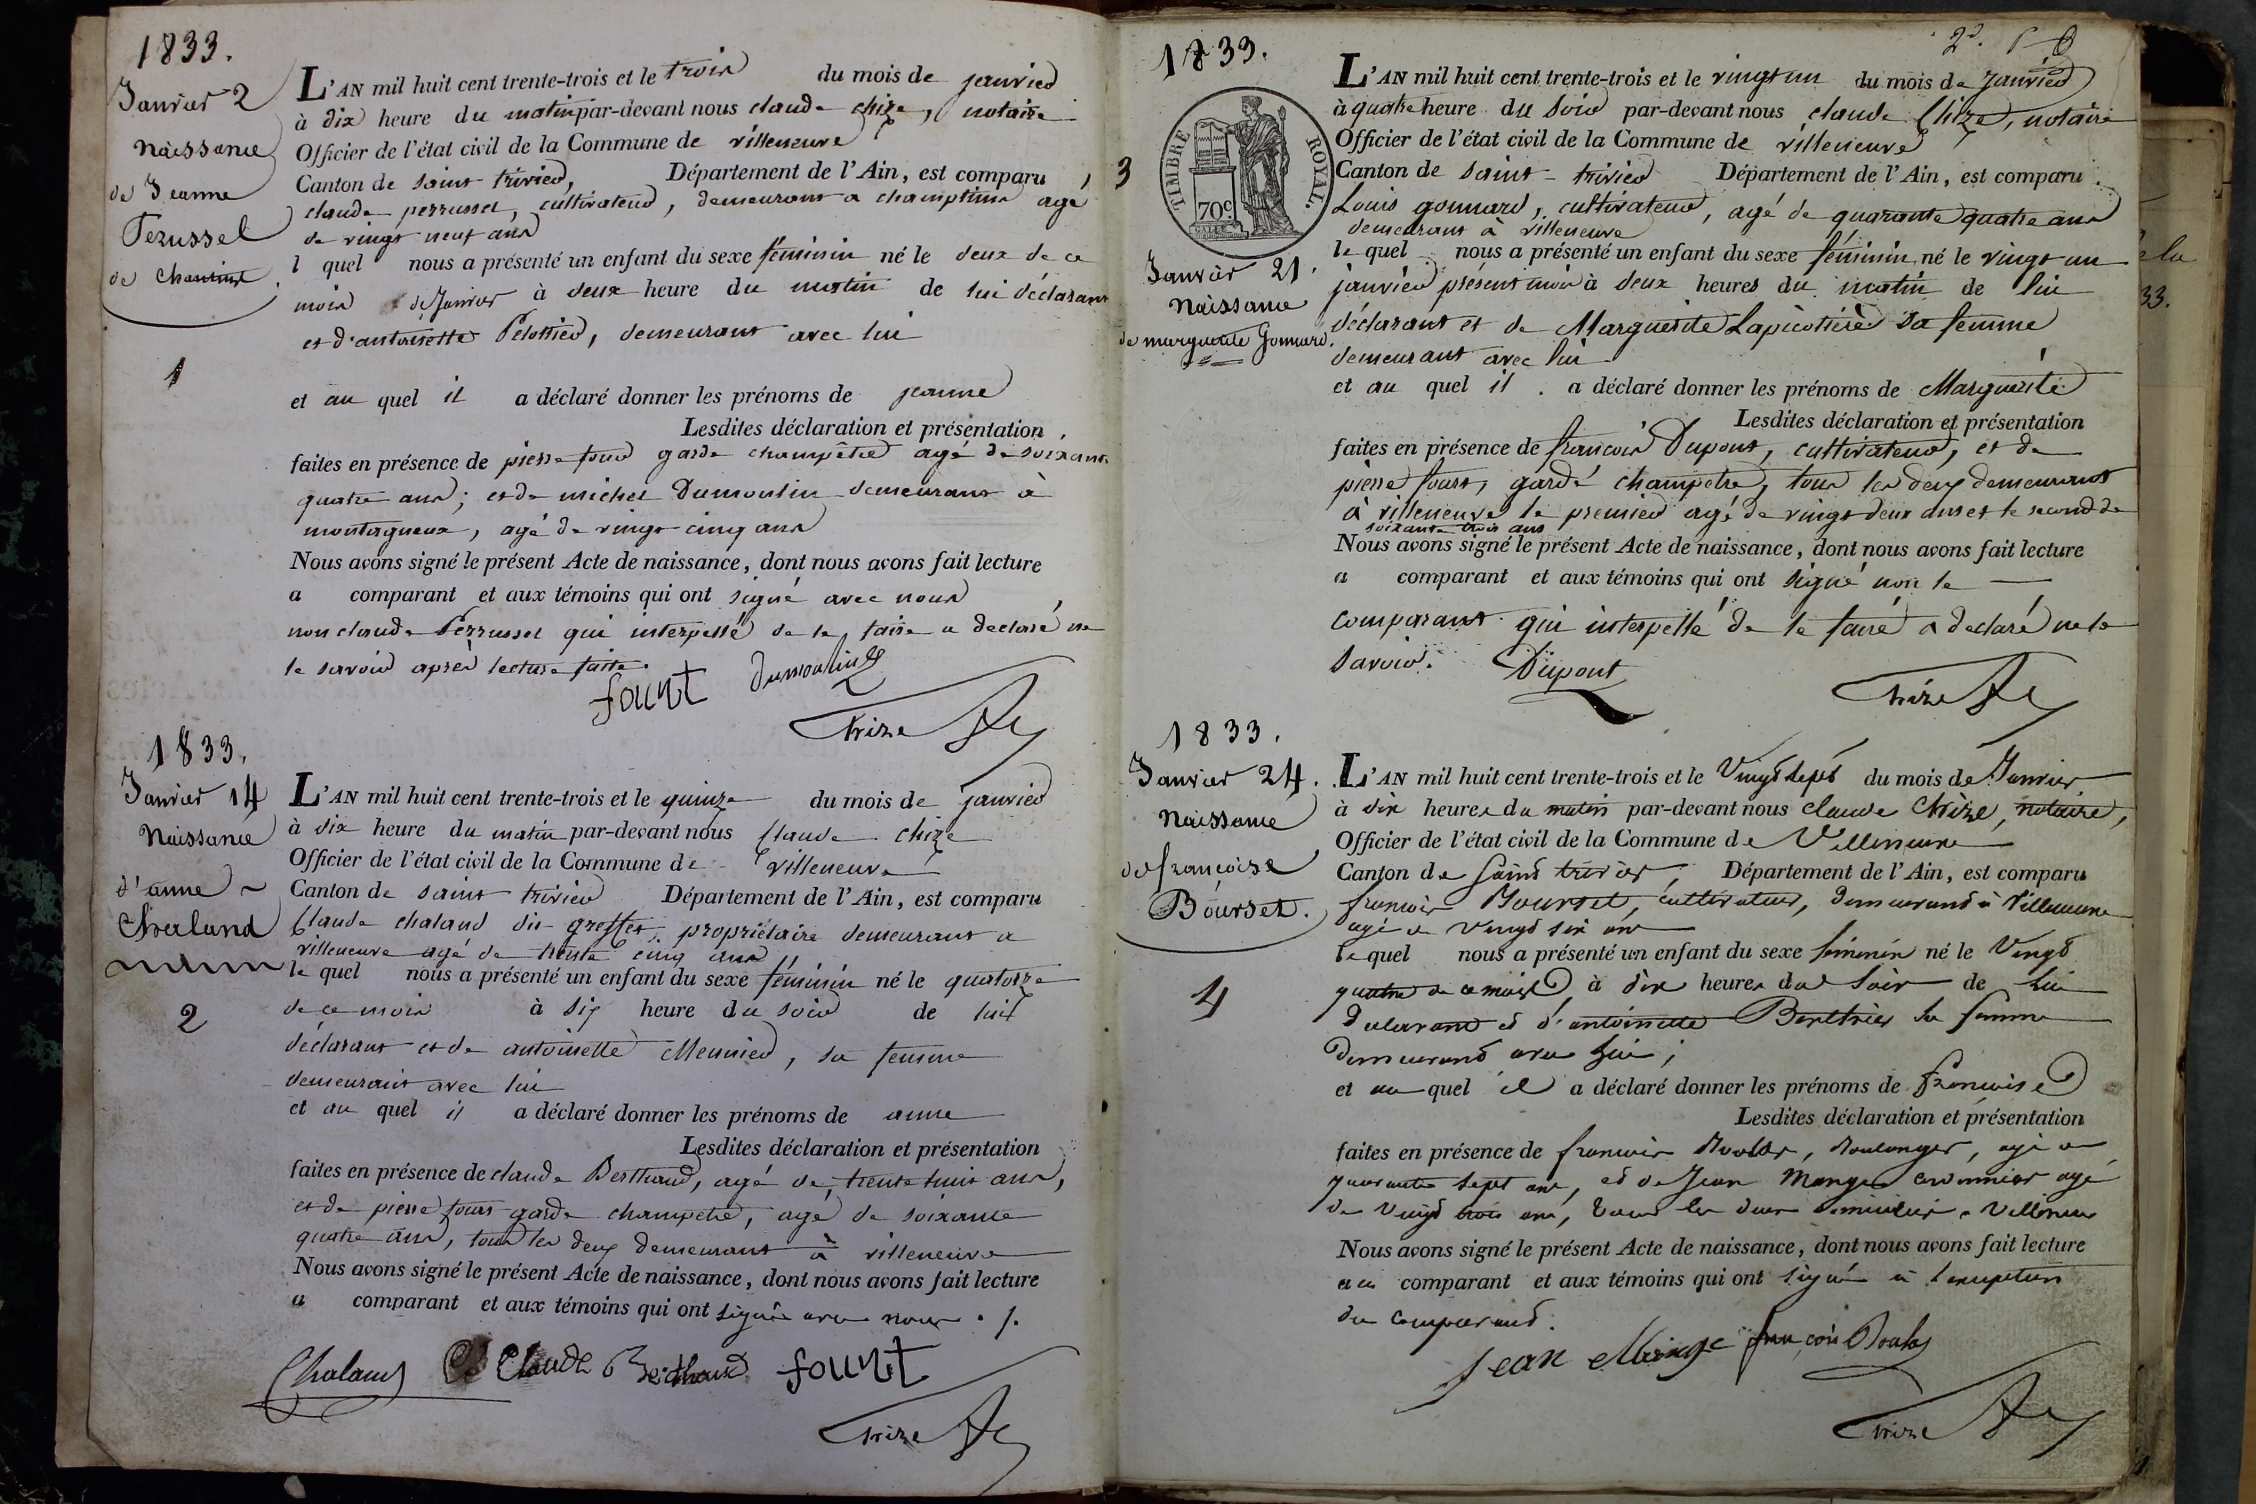 1833.
Janvier 2
Naissance
de Jeanne
Perussel
de
1
L'AN mil huit cent trente-trois et le trois du mois de janvier
à dix heure du matin par-devant nous claude chize, notaire
Officier de l'état civil de la Commune de villeneuve
Canton de saint trivier, Département de l'Ain, est comparu
claude perrussel, cultivateur, demeurant a agé
de vingt neuf ans
l quel nous a présenté un enfant du sexe féminin né le deux de ce
mois de Janvier à deux heure du matin de lui déclarant
et d'antoinette Pelossier, demeurant avec lui
et au quel il a déclaré donner les prénoms de jeanne
Lesdites déclaration et présentation
faites en présence de pierre garde champêtre agé de soixante
quatre ans; et de michel Dumoulin demeurant à
montagneux, agé de vingt cinq ans
Nous avons signé le présent Acte de naissance, dont nous avons fait lecture
a comparant et aux témoins qui ont signé avec nous
non claude Perrussel qui interpellé de le faire a declaré ne
le savoir après lecture faite.
fount dumoulin
Chize
1833.
Janvier 14
Naissance
d'anne
Chaland
2
L'AN mil huit cent trente-trois et le quinze du mois de janvier
à dix heure du matin par-devant nous Claude chize
Officier de l'état civil de la Commune de villeneuve
Canton de saint trivier Département de l'Ain, est comparu
Claude chaland dit greffet, propriétaire demeurant a
villeneuve agé de trente cinq ans
le quel nous a présenté un enfant du sexe féminin né le quatorze
de ce mois à six heure du soir de lui
déclarant et de antoinette Meunier, sa femme
demeurant avec lui
et au quel il a déclaré donner les prénoms de anne
Lesdites déclaration et présentation
faites en présence de claude Berthaud, agé de trente huit ans,
et de pierre garde champetre, agé de soixante
quatre ans, tous les deux demeurant à villeneuve
Nous avons signé le présent Acte de naissance, dont nous avons fait lecture
a comparant et aux témoins qui ont signé avec nous ./.
Chaland Claude Berthaud fount
Chize
2d.
1833.
TIMBRE ROYAL.
70c
3
Janvier 21.
Naissance
de marguerite Gonnard.
L'AN mil huit cent trente-trois et le vingt un du mois de Janvier
à quatre heure du soir par-devant nous claude Chize, notaire
Officier de l'état civil de la Commune de villeneuve
Canton de saint-trivier Département de l'Ain, est comparu
Louis gonnard, cultivateur, agé de quarante quatre ans
demeurant à villeneuve
le quel nous a présenté un enfant du sexe féminin, né le vingt un
janvier présent mois à deux heures du matin de lui
déclarant et de Marguerite Lapicotière sa femme
demeurant avec lui
et au quel il a déclaré donner les prénoms de Marguerite
Lesdites déclaration et présentation
faites en présence de françois Dupont, cultivateur, et de
pierre garde champetre, tous les deux demeurant
à villeneuve le premier agé de vingt deux ans et le second de
soixante trois ans
Nous avons signé le présent Acte de naissance, dont nous avons fait lecture
a comparant et aux témoins qui ont signé non le
comparant qui interpellé de le faire a declaré ne le
savoir. Dupont
Chize
1833.
Janvier 24.
Naissance
de françoise
Bourset.
4
L'AN mil huit cent trente-trois et le Vingt sept du mois de Janvier
à dix heures du matin par-devant nous Claude Chize, notaire,
Officier de l'état civil de la Commune de Villeneuve
Canton de Saint trivier, Département de l'Ain, est comparu
françois Bourset, cultivateur, demeurant à Villeneuve
agé de Vingt six ans
le quel nous a présenté un enfant du sexe féminin né le Vingt
quatre de ce mois à dix heures du Soir de lui
Déclarant et d'antoinette sa femme
Demeurant avec lui;
et au quel il a déclaré donner les prénoms de françoise
Lesdites déclaration et présentation
faites en présence de francois Boulanger, agé de
quarante sept ans, et de Jean Mange agé
de Vingt trois ans, tous les deux domiciliés à Villeneuve
Nous avons signé le présent Acte de naissance, dont nous avons fait lecture
au comparant et aux témoins qui ont signé à l'exception
du comparant.
Jean Mange françois
Chize